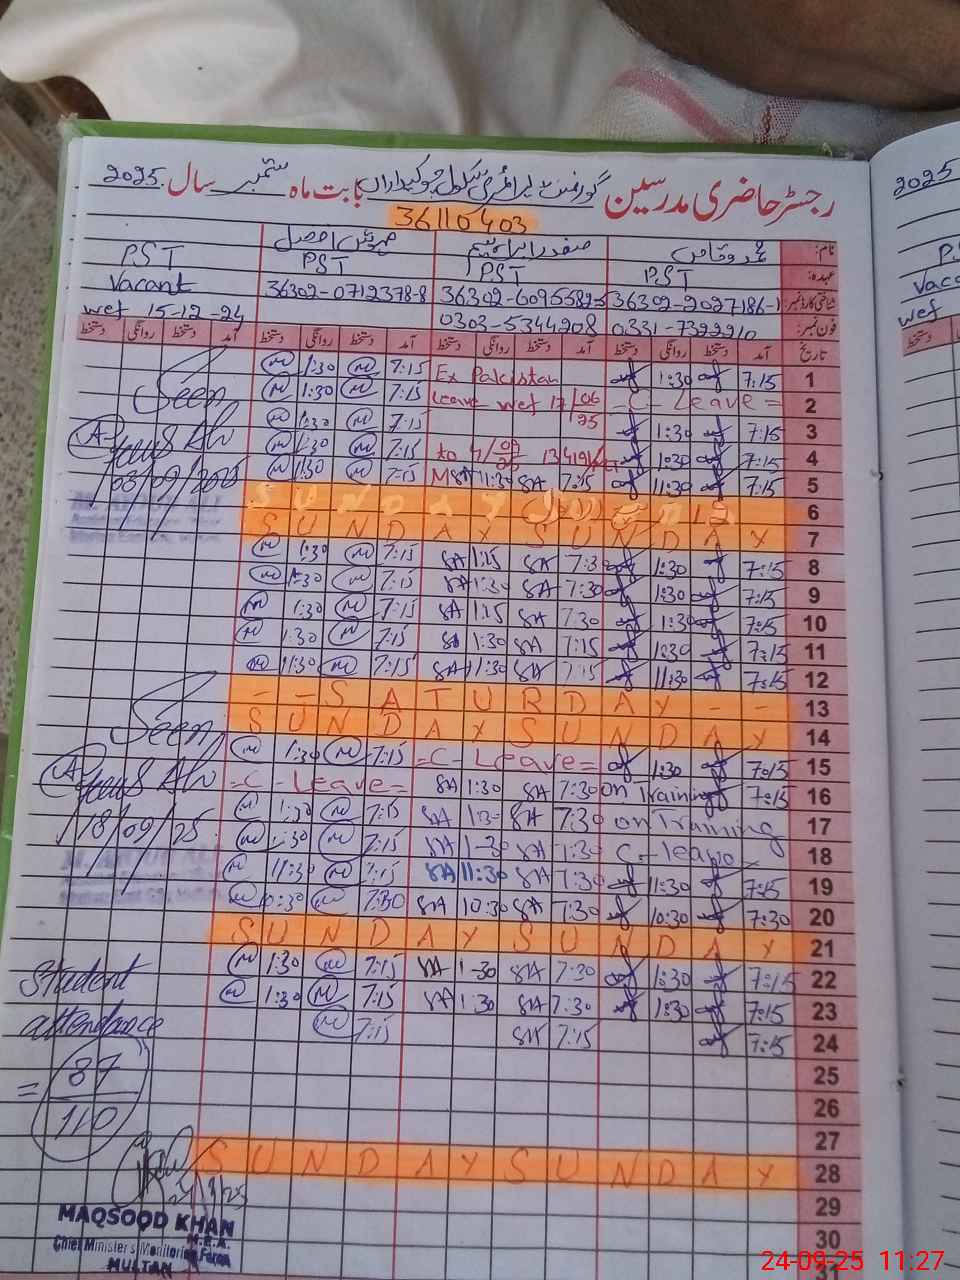 رجسٹر حاضری مدرسین گورنمنٹ پرائمری سکول چوکیداراں بابت ماہ ستمبر سال 2025
36110403
نام: محمد وقاص صفدر ابراہیم افضل
عہدہ: PST PST PST PST
شناختی کارڈ نمبر: 36302-2027186-1 36302-0712378-8 Vacant
فون نمبر: 0331-7322210 0303-5344208 wef 15-12-24
تاریخ آمد دستخط روانگی دستخط آمد دستخط روانگی دستخط آمد دستخط روانگی دستخط آمد دستخط روانگی دستخط
1 7:15 1:30 Ex Pakistan 7:15 1:30
2 = C - Leave = Leave wef 17/06/25 7:15 1:30
3 7:15 1:30 7:15 1:30
4 7:15 1:30 to 4/09/25 7:15 1:30
5 7:15 11:30 SA 7:15 SA 11:30 7:15 11:30
6
7 S U N D A Y S U N D A Y
8 7:15 1:30 SA 7:30 SA 1:15 7:15 1:30
9 7:15 1:30 SA 7:30 SA 1:30 7:15 1:30
10 7:15 1:30 SA 7:30 SA 1:15 7:15 1:30
11 7:15 1:30 SA 7:15 SA 1:30 7:15 1:30
12 7:15 11:30 SA 7:15 SA 11:30 7:15 11:30
13 - - S A T U R D A Y - -
14 S U N D A Y S U N D A Y
15 7:15 1:30 = C - Leave = 7:15 1:30
16 7:15 on Training SA 7:30 SA 1:30 = C - Leave =
17 on Training SA 7:30 SA 1:30 7:15 1:30
18 C - leave SA 7:30 SA 1-30 7:15 1:30
19 7:15 11:30 SA 7:30 SA 11:30 7:15 11:30
20 7:30 10:30 SA 7:30 SA 10:30 7:30 10:30
21 S U N D A Y S U N D A Y
22 7:15 1:30 SA 7:30 SA 1-30 7:15 1:30
23 7:15 1:30 SA 7:30 SA 1:30 7:15 1:30
24 7:15 SA 7:15 7:15
25
26
27
28 S U N D A Y S U N D A Y
29
30
Seen
03/09/2025
Seen
18/09/25
Student
attendance
= 87
110
MAQSOOD KHAN
M.E.A.
Chief Minister's Monitoring Force
MULTAN
2025
24-09-25 11:27